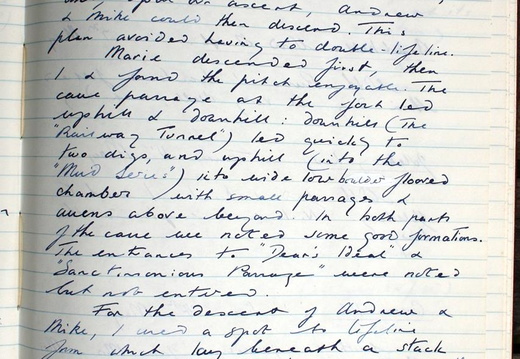 our ascent, Andrew
& Mike could then descend. This
plan avoided having to double-lifeline.
Marie descended first, then
I & found the pitch enjoyable. The
cave passage at the foot led
uphill & downhill: downhill (The
"Railway Tunnel") led quickly to
two digs, and uphill (into the
"Mud Series") into wide low boulder floored
chamber with small passages &
avens above beyond. In both parts
of the cave we noted some good formations.
The entrances to "Dear's Ideal" &
"Sanctimonious Passage" were noted
but not entered.
For the descent of Andrew &
Mike, I used a spot to lifeline
from which lay beneath a stack